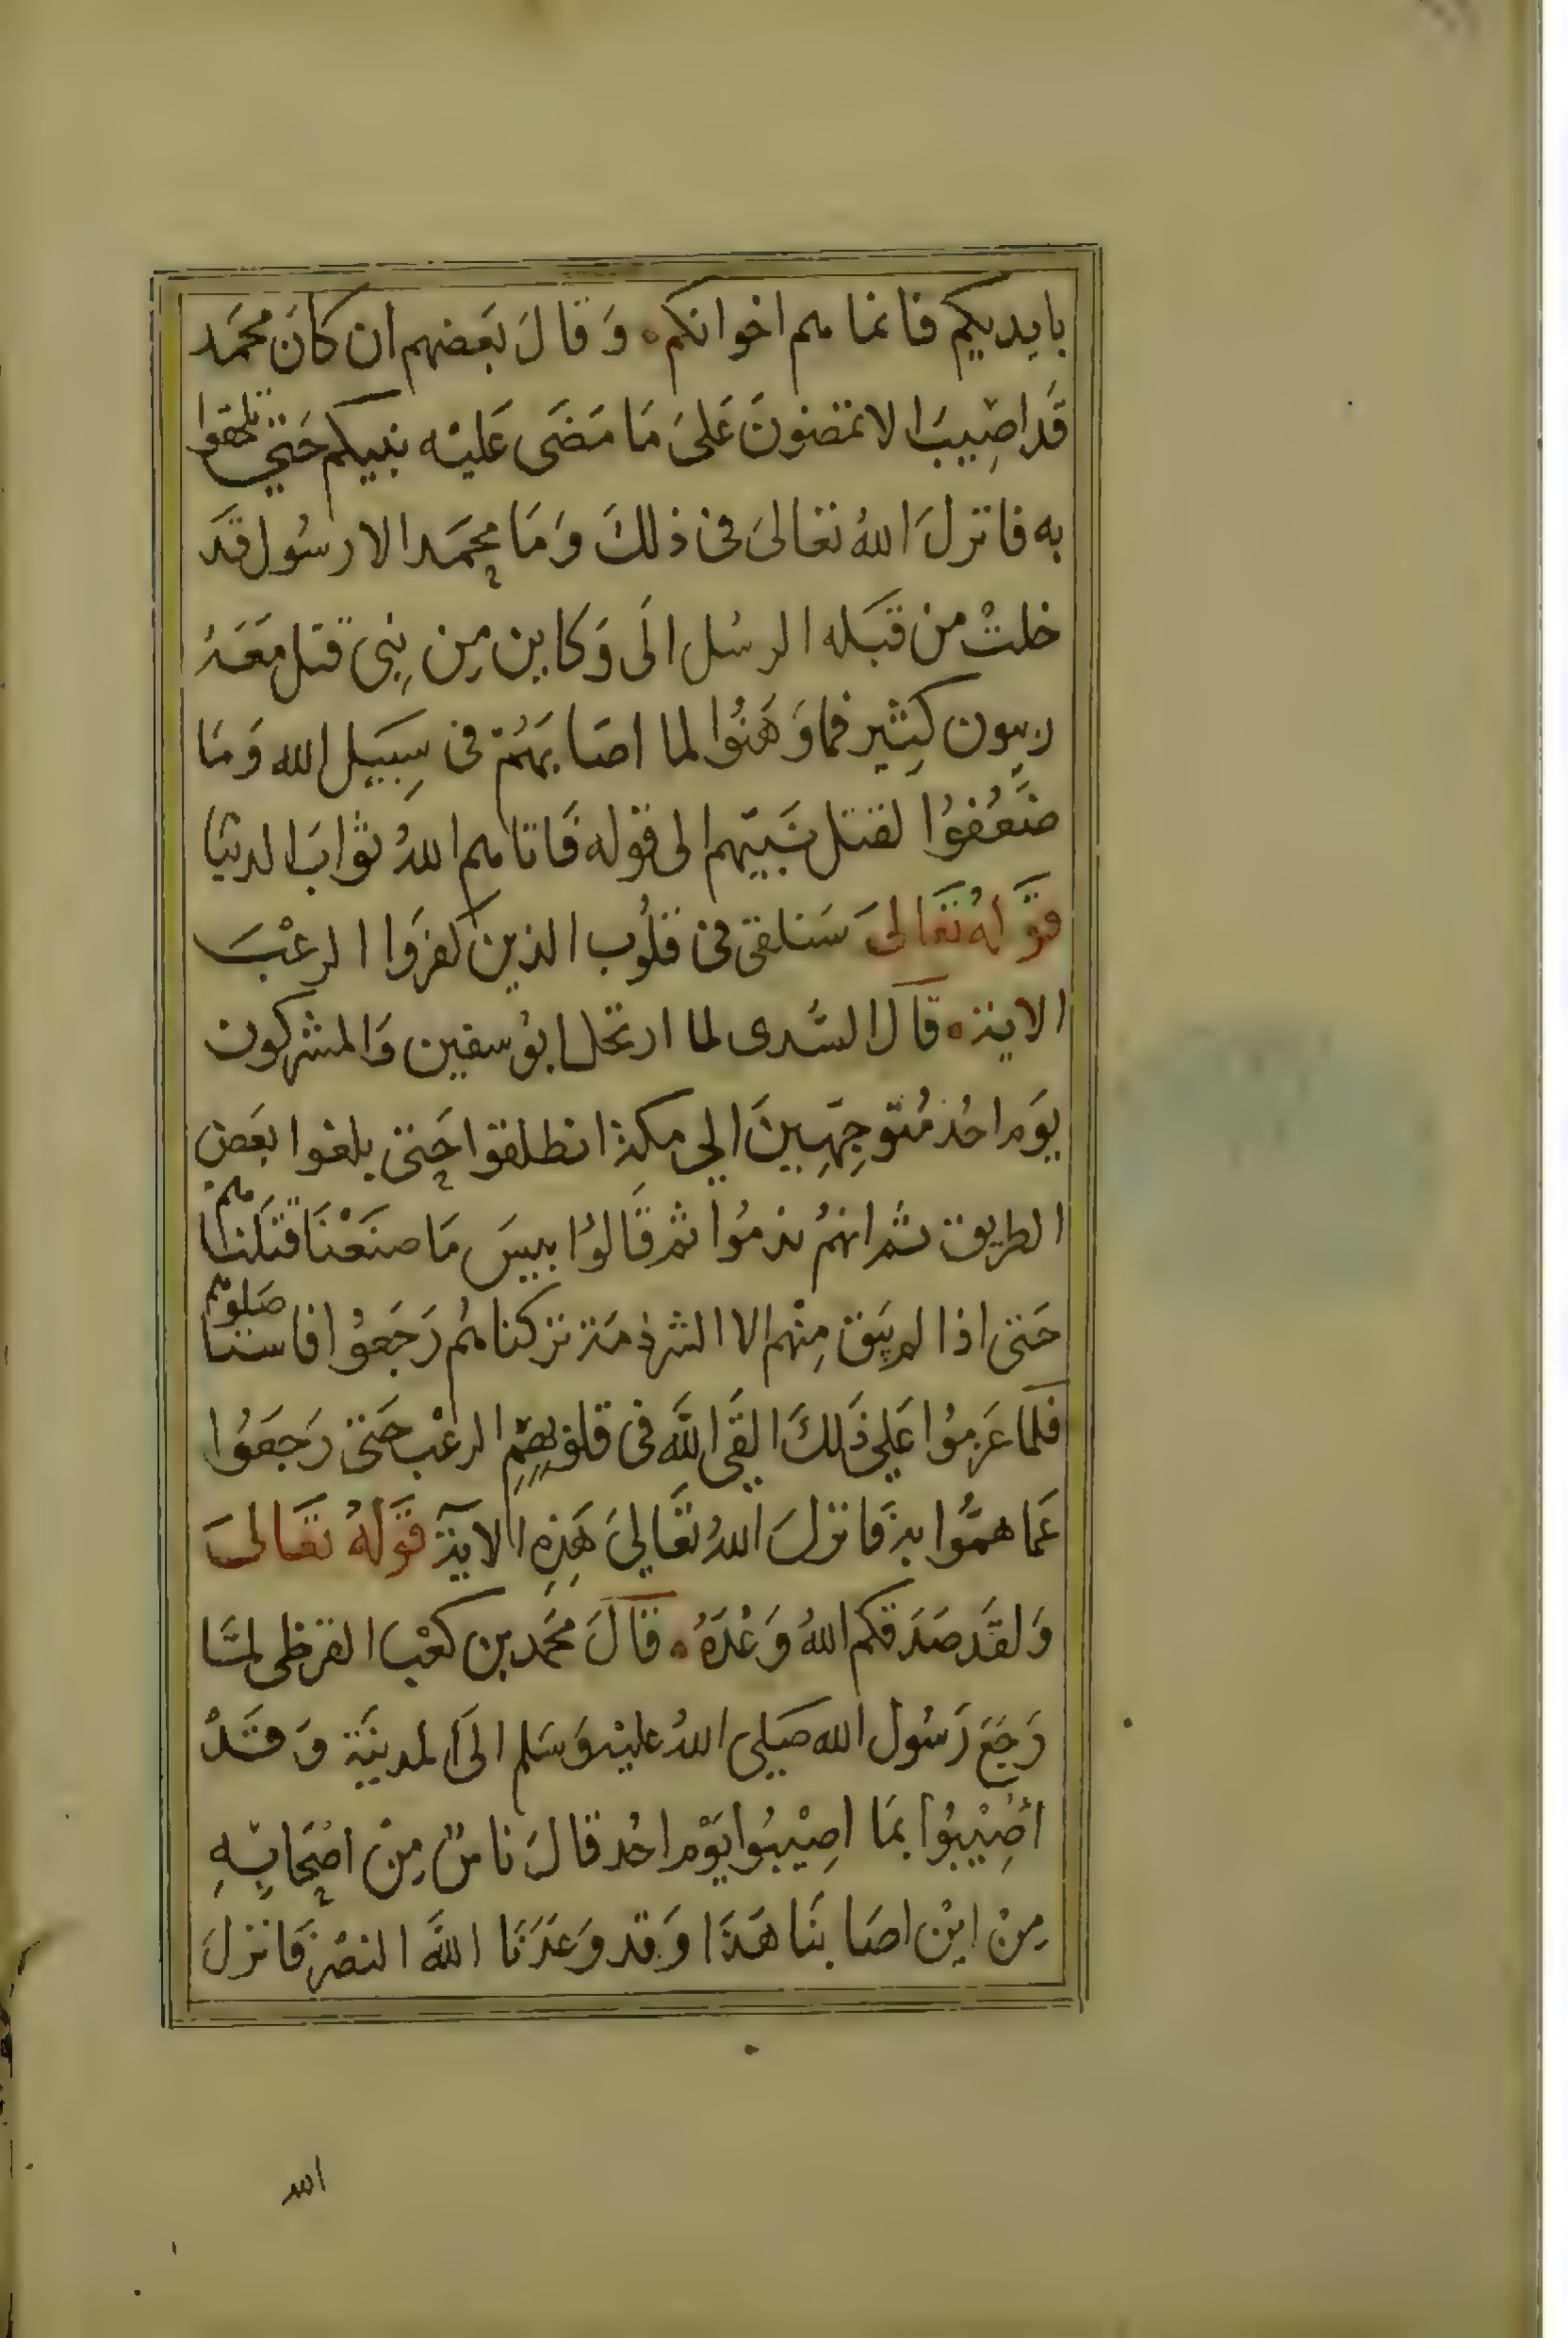 بايديكم فانما هم اخوانكم ه وَقالَ بَعضهم ان كانَ محمَد
قَد اصِيبَ الا تمضونَ عَلىَ مَا مَضَى عَليْه نبيكم حَتي تلحقوا
به فانزلَ اللهُ تعَالىَ في ذلكَ وَمَا محمَد الا رسُول قَد
خلتْ من قبَله الرسُل الَى وَكاين مِن نبِى قتل مَعَهُ
ربيون كثِير فما وَهَنُوا لما اصَابهَمُ في سبِيَل الله وَمَا
ضَعُفوُا لقتل نبَيّهم الى قوله فَاتاهم اللهُ ثوابَ الدنيَا
قوَلهُ تعَالىَ سَنلقى في قلُوب الذين كفروَا الرعْبَ
الاية ه قالَ السُّدى لما ارتحل ابوُ سفين وَالمشركون
يوَم احُد مُتوجِهّينَ الي مكة انطلقوا حَتى بلغوا بعَض
الطريق ثم انهمُ ندموُا ثم قَالوُا بيسَ مَا صنَعْنَا قتَلناهم
حَتى اذا لم يَبق مِنْهم الا الشرذمَة تركناهُم رَجَعوُا فاستاصَلوهم
فلما عَزموُا عَلي ذَلكَ القَى اللَّه في قلوبهِمِ الرعْب حَتى رَجَعوُا
عَما همُّوا به فَانزلَ اللهُ تعَاليَ هَذِهِ الآية قوَلهُ تعَالىَ
وَلقَد صَدَقكم اللهُ وَعْدَهُ ه قالَ محمَد بن كعْب القرظى لمَّا
رَجَعَ رَسُول الله صَلي اللهُ عليْه وَسَلم الَى المدينَة وَقَدْ
أصِيْبوُا بمَا اصِيْبُوا يوْم احُد قالَ نَاسٌ مِنْ اصْحَابِهِ
مِنْ ايْن اصَابنَا هَذَا وَقد وَعَدَنَا اللَّه النصْر فَانزلَ
الله